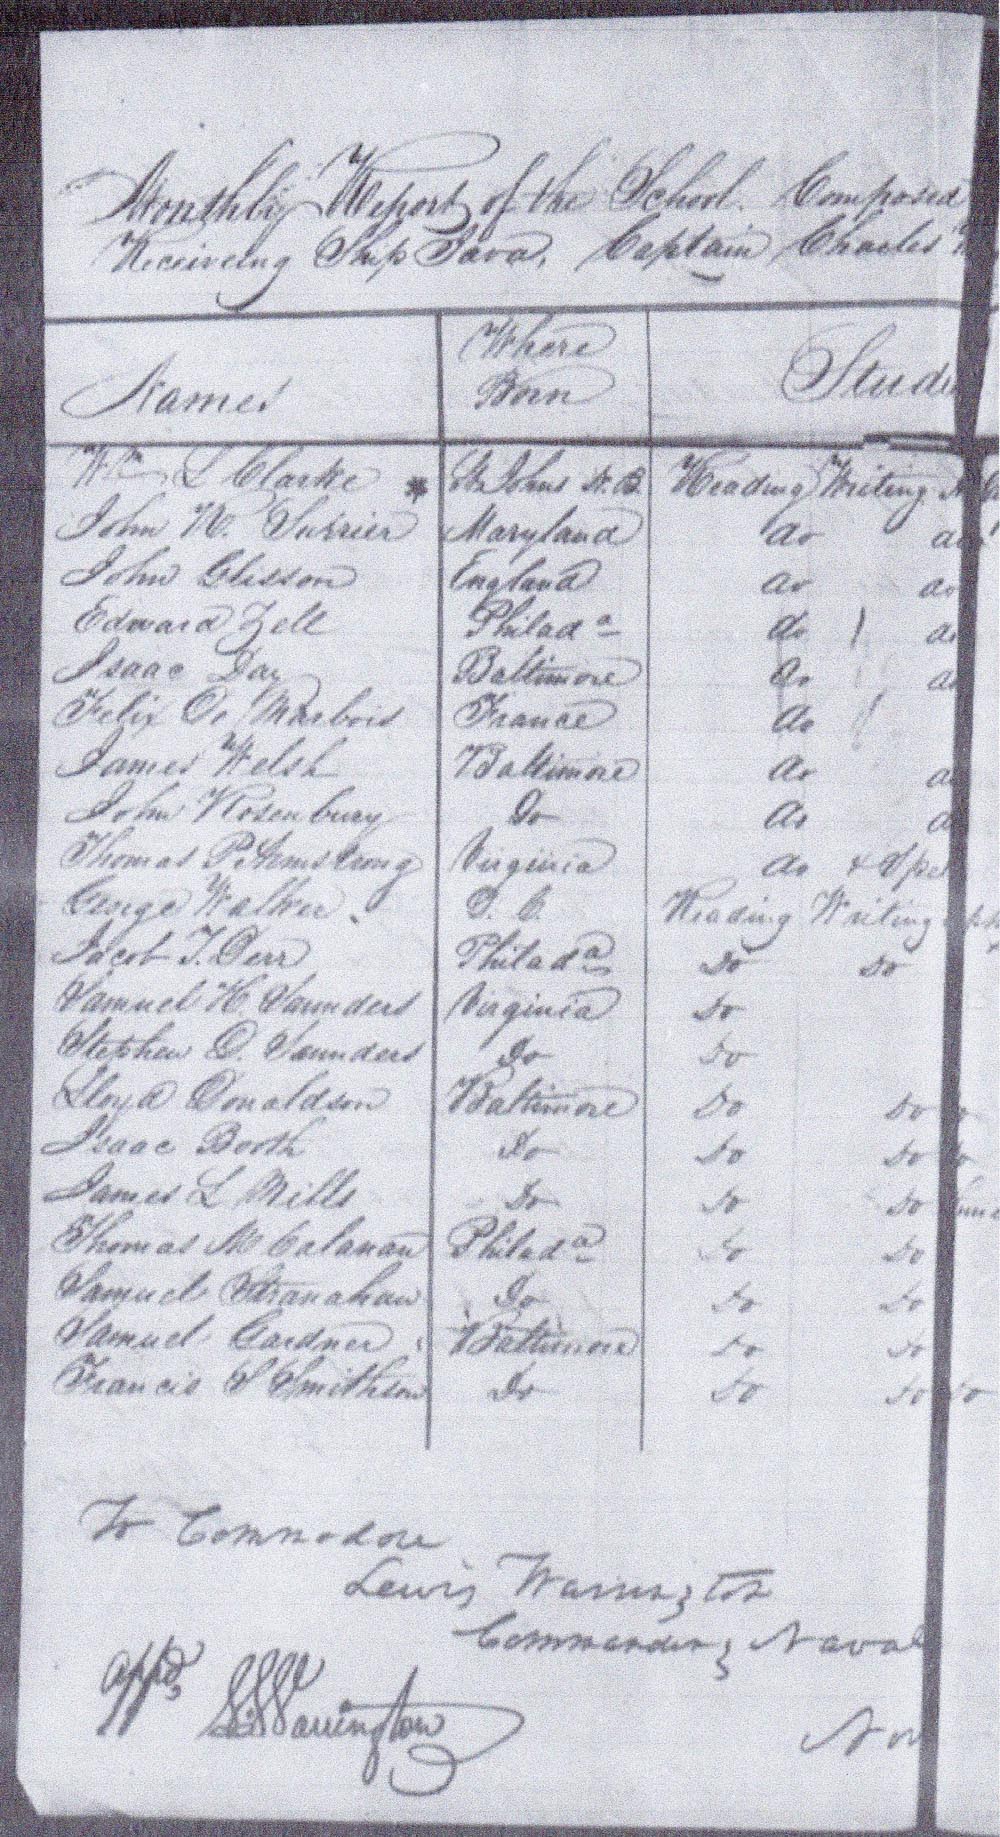 Monthly Report of the School. Composed
Receiveing Ship Java, Captain Charles
Names Where Born Studi
Wm L Clarke * St Johns N. B. Reading Writing
John W. Currier Maryland do do
John Glisson England do do
Edward Zell Philada do do
Isaac Day Baltimore do do
Felix De Marbois France do
James Welsh Baltimore do
John Rosenbury Do do
Thomas P. Armstrong Virginia do & Spel
George Walker D. C. Reading Writing
Jacob T. Derr Philada Do Do
Samuel H. Saunders Virginia Do
Stephen D. Saunders Do Do
Lloyd Donaldson Baltimore Do Do Do
Isaac Booth Do Do Do Do
James L Mills Do Do Do
Thomas McCalanan Philada Do Do
Samuel Stranahan Do Do Do
Samuel Gardner Baltimore Do Do
Francis S Smithson Do Do Do Do
To Commodore
Lewis Warrington
Commanding Naval
Appd
L. Warrington
Nor